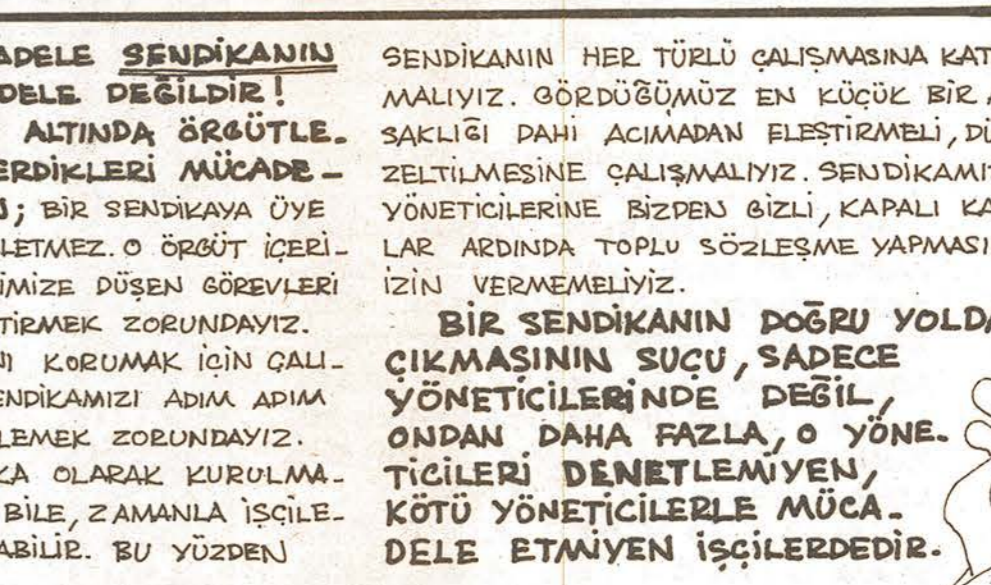 ADELE SENDİKANIN
DELE DEĞİLDİR!
ALTINDA ÖRGÜTLE_
ERDİKLERİ MÜCADE_
BİR SENDİKAYA ÜYE
LETMEZ. O ÖRGÜT İÇERİ_
İMİZE DÜŞEN GÖREVLERİ
TİRMEK ZORUNDAYIZ.
NI KORUMAK İÇİN ÇALI_
ENDİKAMIZI ADIM ADIM
LEMEK ZORUNDAYIZ.
KA OLARAK KURULMA_
BİLE, ZAMANLA İŞÇİLE_
ABİLİR. BU YÜZDEN
SENDİKANIN HER TÜRLÜ ÇALIŞMASINA KAT
MALIYIZ. GÖRDÜĞÜMÜZ EN KÜÇÜK BİR
SAKLIĞI DAHİ ACIMADAN ELEŞTİRMELİ, DÜ
ZELTİLMESİNE ÇALIŞMALIYIZ. SENDİKAMI
YÖNETİCİLERİNE BİZDEN GİZLİ, KAPALI KA
LAR ARDINDA TOPLU SÖZLEŞME YAPMASI
İZİN VERMEMELİYİZ.
BİR SENDİKANIN DOĞRU YOLDA
ÇIKMASININ SUÇU, SADECE
YÖNETİCİLERİNDE DEĞİL,
ONDAN DAHA FAZLA, O YÖNE_
TİCİLERİ DENETLEMİYEN,
KÖTÜ YÖNETİCİLERLE MÜCA_
DELE ETMİYEN İŞÇİLERDEDİR.